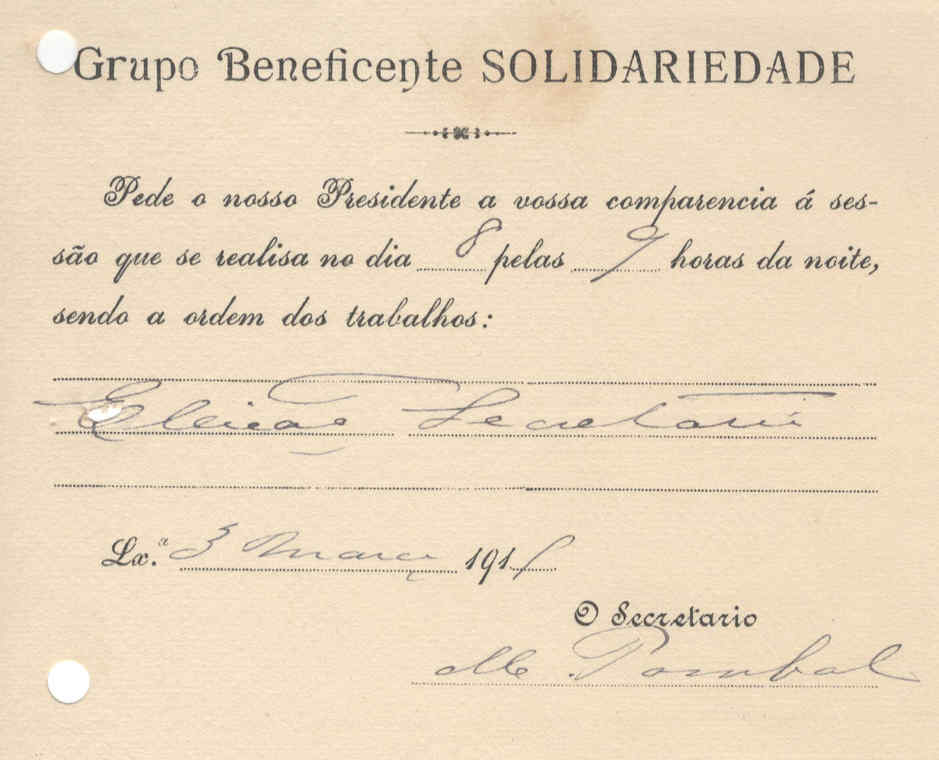 Grupo Beneficente SOLIDARIEDADE
Pede o nosso Presidente a vossa comparencia á ses-
são que se realisa no dia 8 pelas 9 horas da noite,
sendo a ordem dos trabalhos:
Eleição Secretario
Lx.ª 3 Março 191
O Secretario
M. Pombal